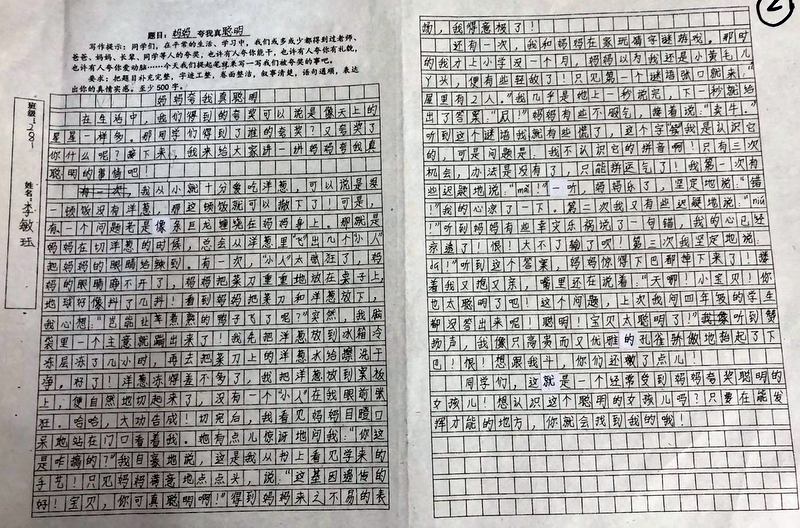 题目：妈妈夸我真聪明
写作提示：同学们，在平常的生活、学习中，我们或多或少都得到过老师、
爸爸、妈妈、长辈、同学等人的夸奖，也许有人夸你能干，也许有人夸你有礼貌，
也许有人夸你爱动脑……今天我们提起笔来写一写我们被夸奖的事吧。
要求：把题目补充完整，字迹工整，卷面整洁，叙事清楚，语句通顺，表达
出你的真情实感。至少500字。
班级：201
姓名：李敏珏
妈妈夸我真聪明
在生活中，我们得到的夸奖可以说是像天上的
星星一样多。那同学们得到了谁的夸奖？又夸奖了
你什么呢？接下来，我来给大家讲一讲妈妈夸我真
聪明的事情吧！
有一次，我从小就十分爱吃洋葱，可以说是要
一顿饭没有洋葱，那这顿饭就可以撤下了！可是，
有一个问题老是像条巨龙缠绕在妈妈身上。那就是
妈妈在切洋葱的时候，总会从洋葱里“飞出几个小人”
把妈妈的眼睛给辣到。有一次，“小人”太猖狂了，妈
妈的眼睛睁不开了，妈妈把菜刀重重地放在桌子上，
地球好像抖了几抖！看到妈妈把菜刀和洋葱放下，
我心想：“岂能让煮熟的鸭子飞了呢？”突然，我脑
袋里一个主意就蹦出来了！我先把洋葱放到冰箱冷
冻层冻了几小时，再去把菜刀上的洋葱水给擦洗干
净。好了！洋葱冻得差不多了，我把洋葱放到案板
上，便自然地切起来了，没有一个“小人”在我眼前猖
狂。哈哈，大功告成！切完后，我看见妈妈目瞪口
呆地站在门口看着我。她有点儿惊讶地问我：“你这
是咋搞的？”我自豪地说，这是我从书上看见学来的
手艺！只见妈妈满意地点点头，说：“这基因遗传的
好！宝贝，你可真聪明啊！”得到妈妈来之不易的表
扬，我得意极了！
还有一次，我和妈妈在家玩猜字谜游戏。那时
的我才上小学没一个月，妈妈以为我还是小黄毛儿
丫头，便有些轻敌了！只见第一个谜语张口就来：“
屋里有2人。”我几乎是地上一秒说完，下一秒就给
出了答案：“肉！”妈妈有些不服气，接着说：“卖牛。”
听到这个谜语我就有些慌了，这个字我是认识它
的，可是问题是：我不认识它的拼音啊！只有三次
机会，办法是没有了，只能拼运气了！我第一次有
些迟疑地说：“mǎi！”一听，妈妈乐了，坚定地说：“错
！”我的心凉了一下。第二次我又有些迟疑地说：“niú
！”听到妈妈有些幸灾乐祸说了一句错，我的心已经
凉透了！恨！大不了输了呗！第三次我坚定地说：
“dú！”听到这个答案，妈妈惊得下巴都掉下来了！搂
着我又抱又亲，嘴里还在说着：“天哪！小宝贝！你
也太聪明了吧！这个问题，上次我问四年级的学生
都没答出来呢！聪明！宝贝太聪明了！”我听到赞
扬声，我像只高贵而又优雅的孔雀骄傲地抬起了下
巴！恨！想跟我斗！你们还嫩了点儿！
同学们，这就是一个经常受到妈妈夸奖聪明的
女孩儿！想认识这个聪明的女孩儿吗？只要在能发
挥才能的地方，你就会找到我的哦！